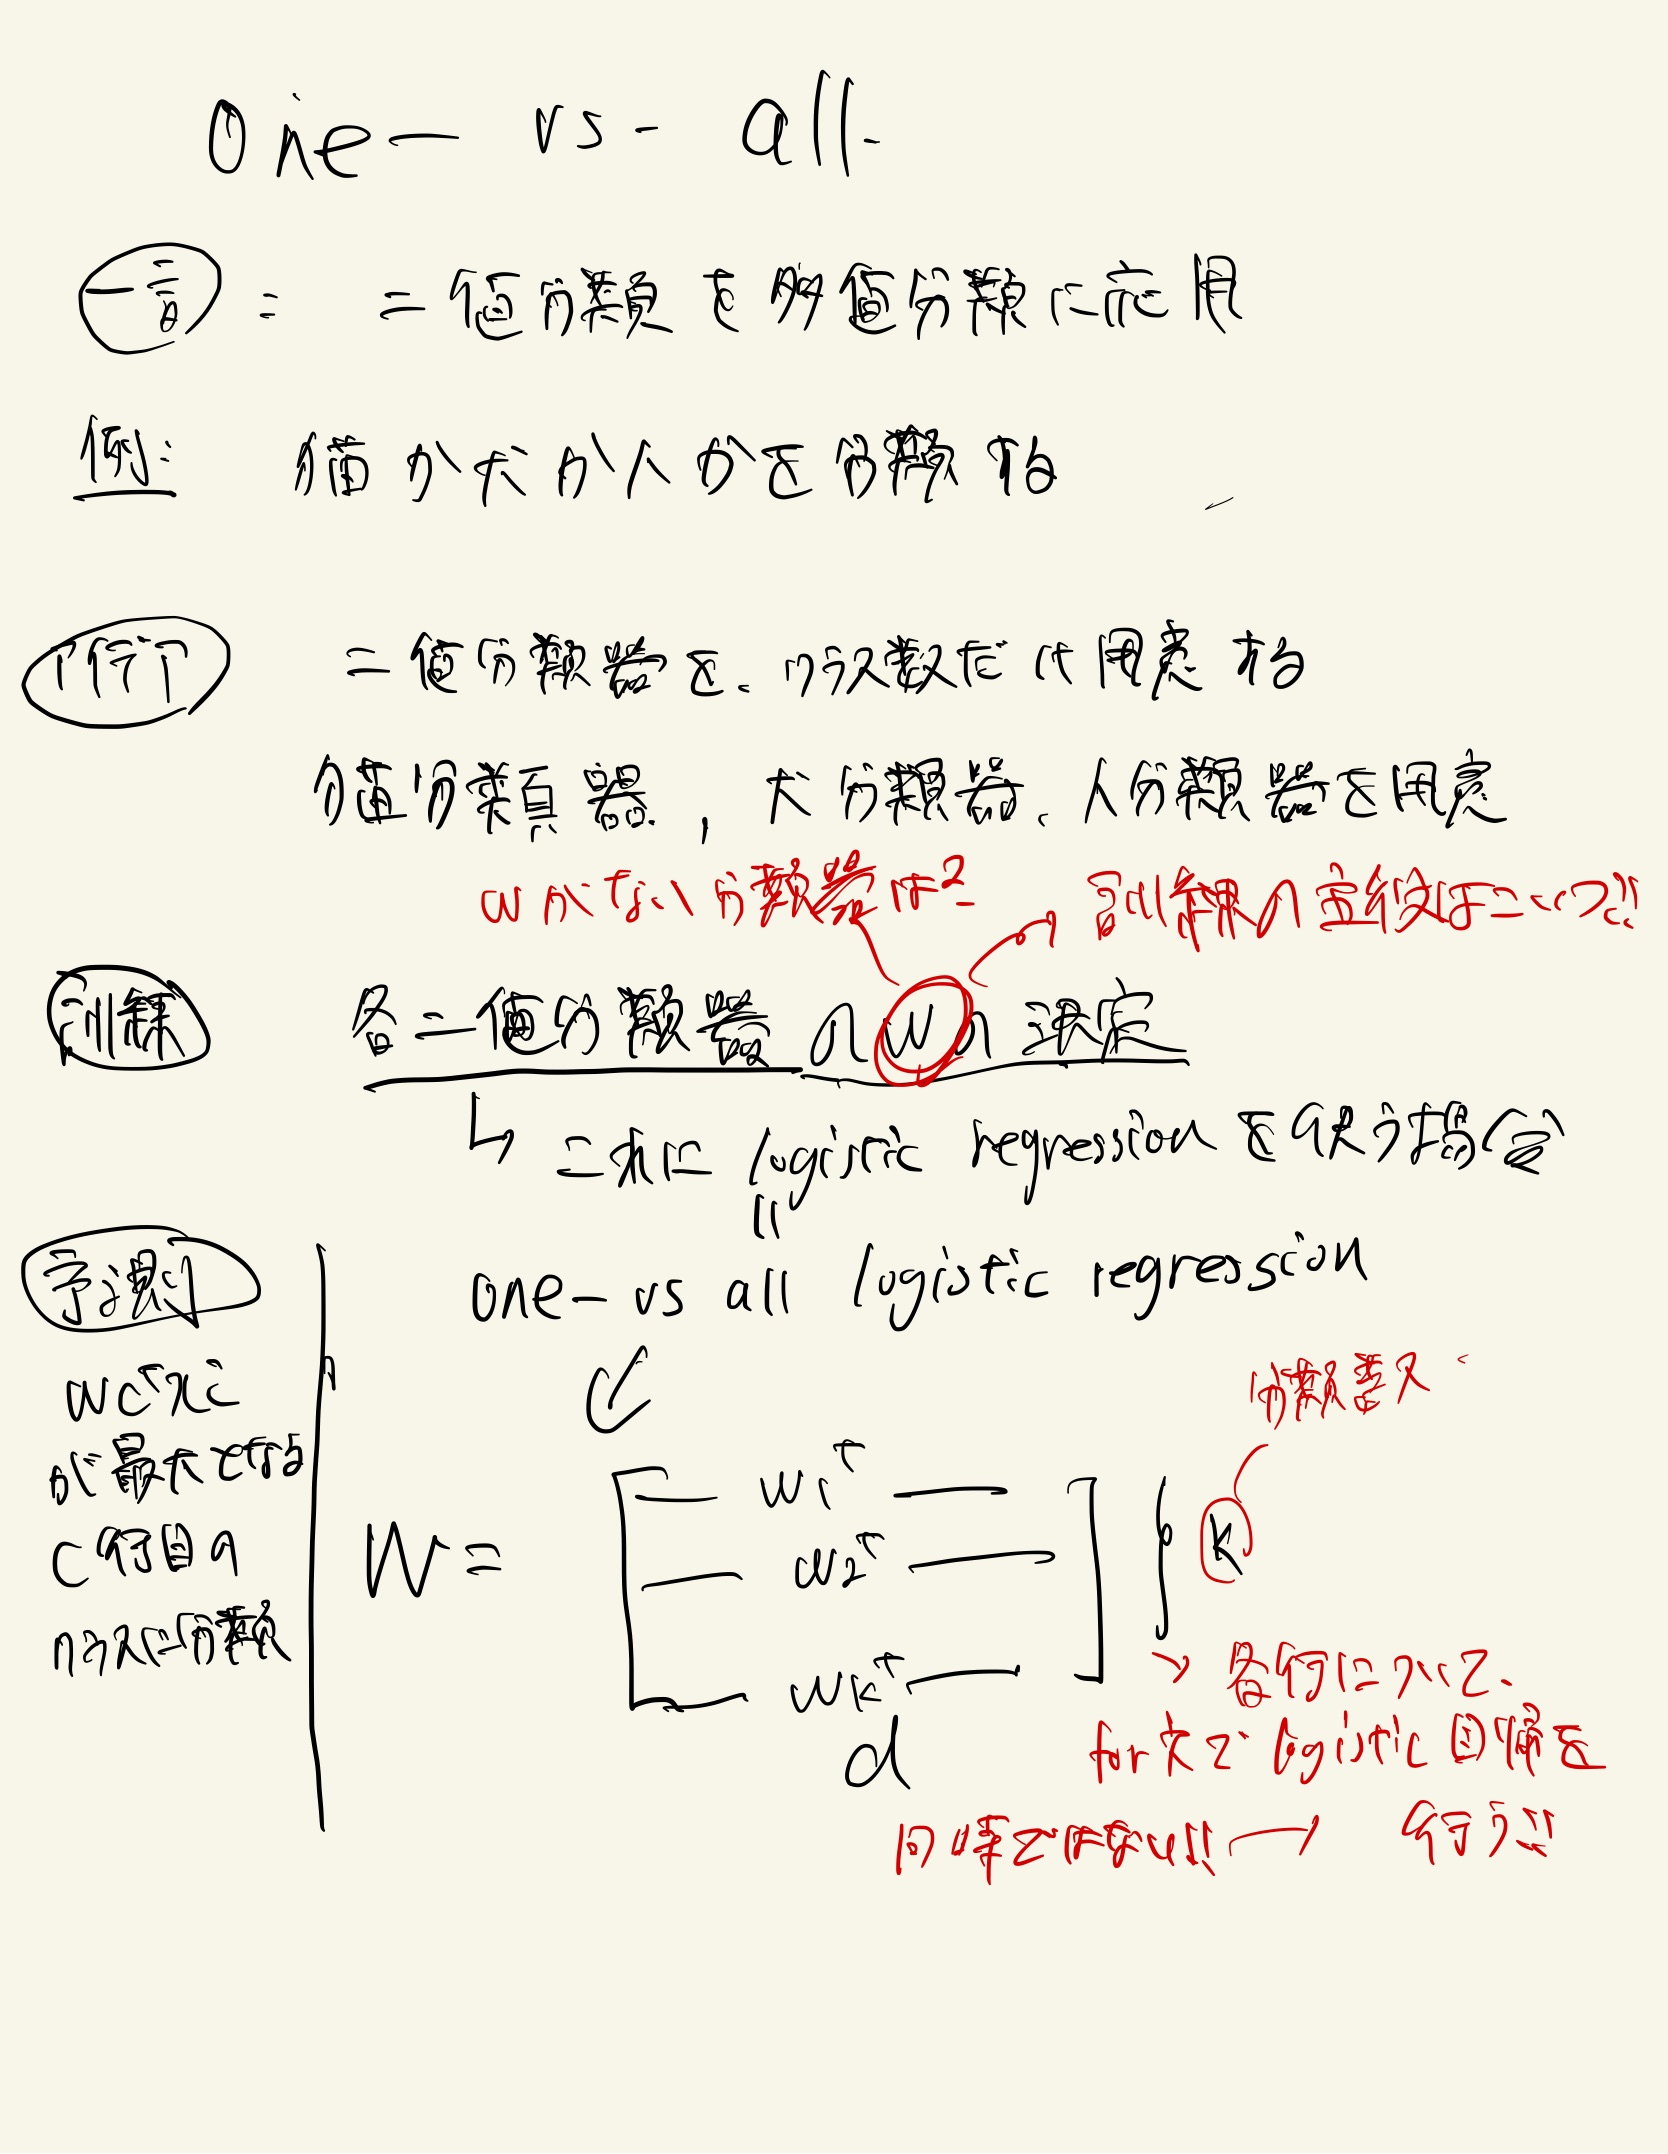 one- vs- all-
一言 : 二値分類を多値分類に応用
例: 猫か犬か人かを分類する
二値分類器を、クラス数だけ用意する
猫分類器, 犬分類器、人分類器を用意
wがない分類器は?
訓練の主役はこいつ!!
訓練 各二値分類器のwの決定
↳ これに logistic regression を使う場合
||
one-vs all logistic regression
予測
wcᵀxi
が最大となる
c行目の
クラスに分類
W = [ — w1ᵀ —
— w2ᵀ —
— wkᵀ — ] } k
d
分類
→ 各行について、
for文で logistic 回帰を
行う!!
同時ではない!! →